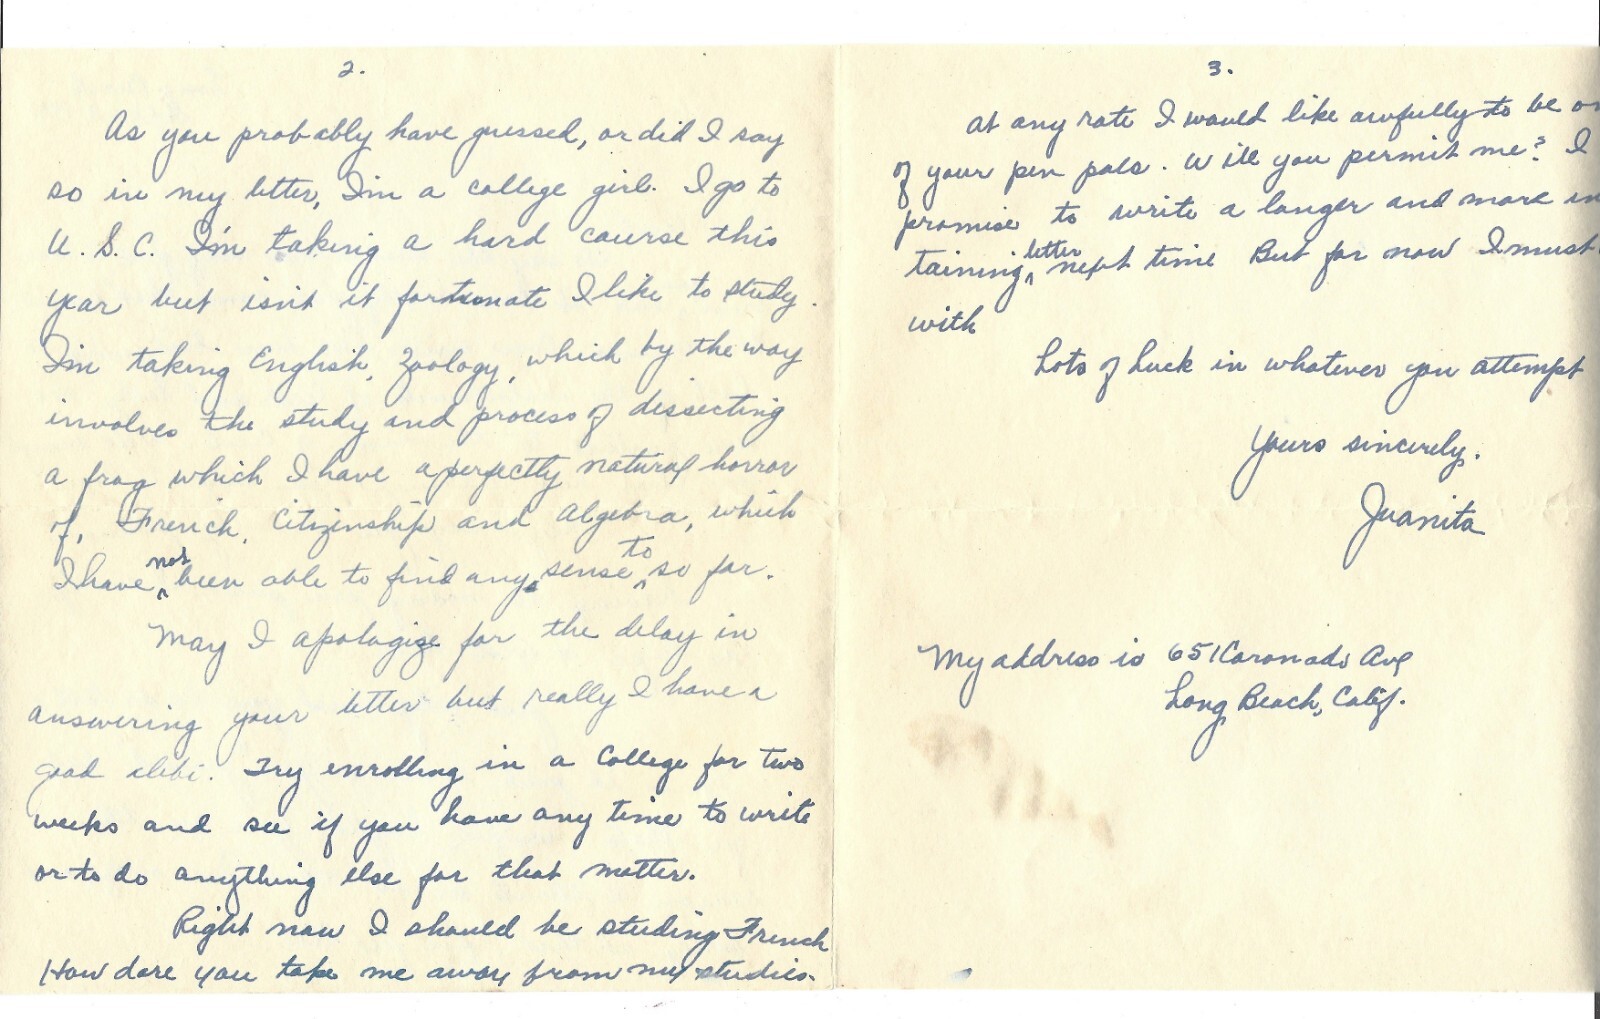 2.
As you probably have guessed, or did I say
so in my letter, I'm a college girl. I go to
U.S.C. I'm taking a hard course this
year but isn't it fortunate I like to study.
I'm taking English, Zoology, which by the way
involves the study and process of dissecting
a frog which I have a perfectly natural horror
of, French, Citizenship and Algebra, which
I have not been able to find any sense to so far.
May I apologize for the delay in
answering your letter but really I have a
good alibi. Try enrolling in a College for two
weeks and see if you have any time to write
or to do anything else for that matter.
Right now I should be studing French
How dare you take me away from my studies.
3.
At any rate I would like awfully to be on
of your pen pals. Will you permit me? I
promise to write a longer and more in
taining letter next time But for now I must
with
Lots of Luck in whatever you attempt
Yours sincerely.
Juanita
My address is 651 Coronado Ave
Long Beach, Calif.